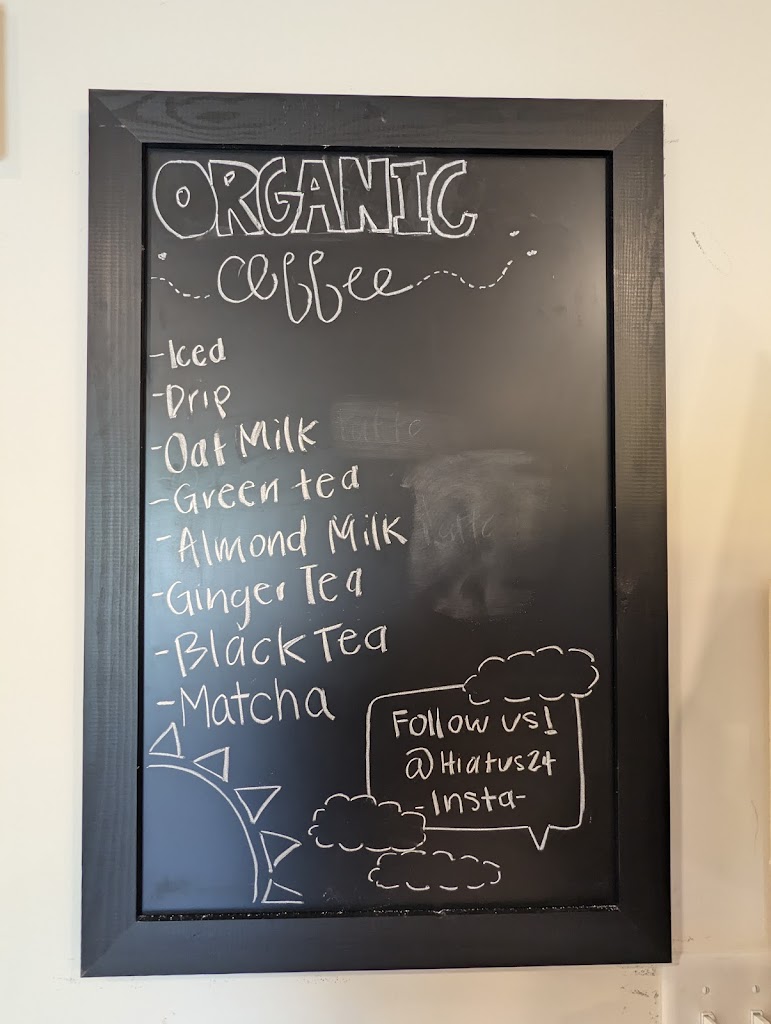 ORGANIC
coffee
-Iced
-Drip
-Oat Milk latte
-Green tea
-Almond Milk latte
-Ginger Tea
-Black Tea
-Matcha
Follow us!
@Hiatus24
-Insta-